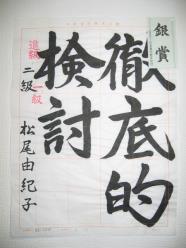 銀賞
徹底的
検討
進級
一級
二級 松尾由紀子